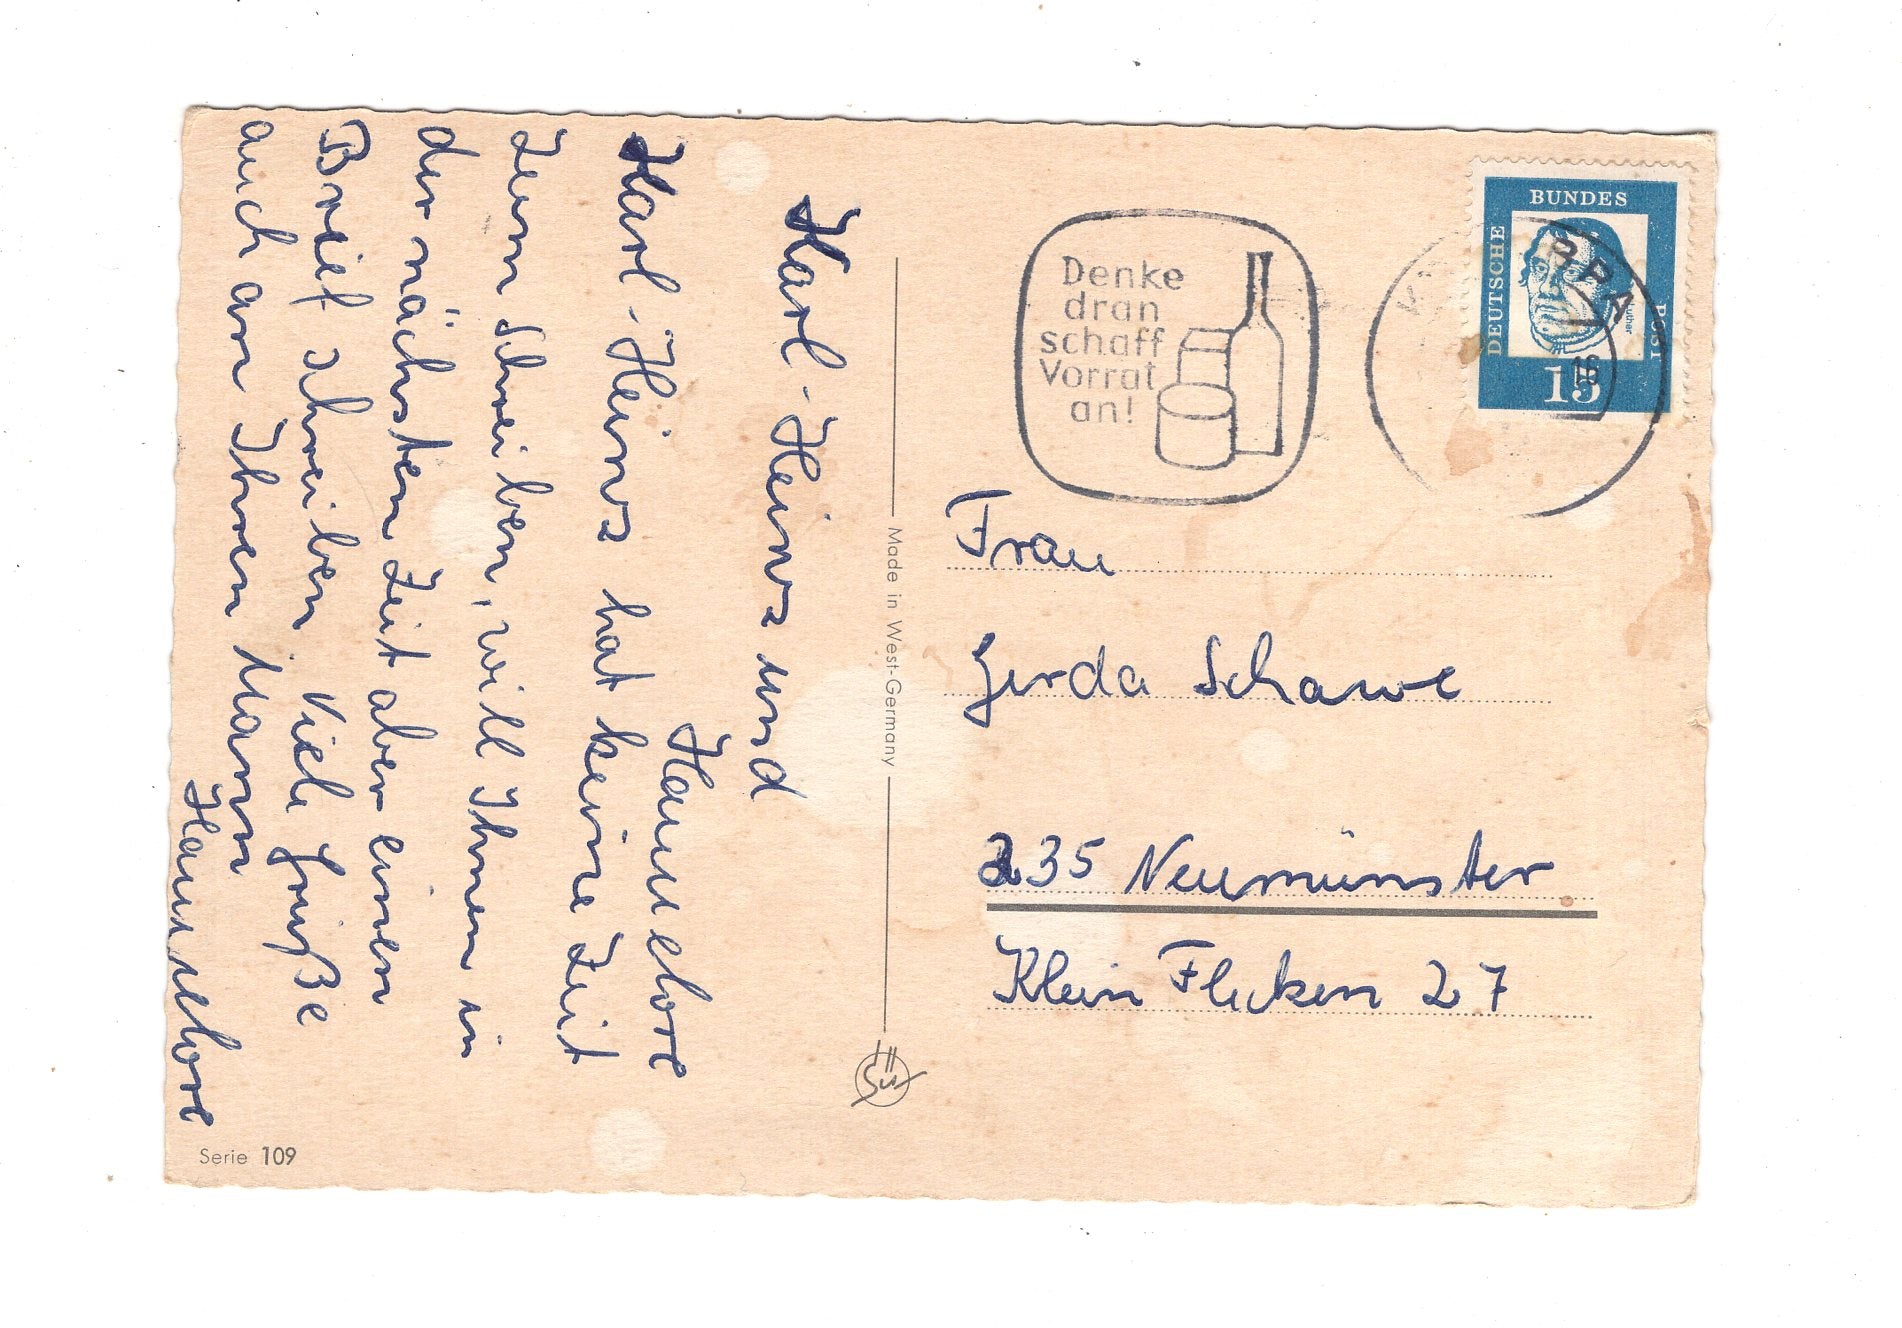 Karl-Heinz und
Hannelore
Karl-Heinz hat keine Zeit
zum Schreiben, will Ihnen in
der nächsten Zeit aber einen
Brief schreiben Viele Grüße
auch an Ihren Mann
Hannelore
Serie 109
Made in West-Germany
Denke
dran
schaff
Vorrat
an!
DEUTSCHE
BUNDES
POST
Luther
15
Frau
Gerda Schawe
235 Neumünster
Klein Flecken 27